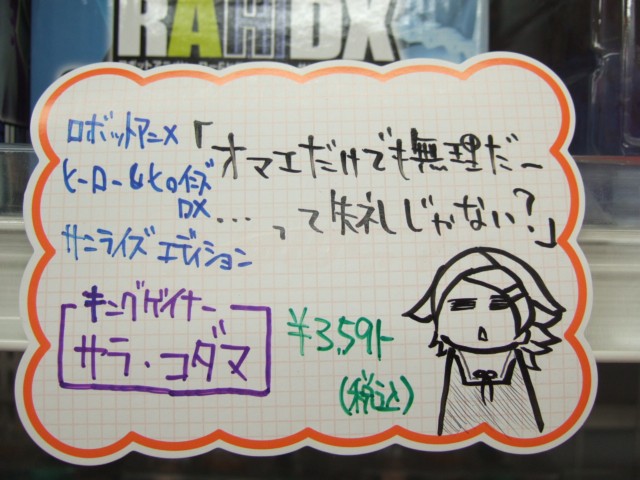 RAH DX
ロボットアニメ
ヒーロー&ヒロインズ
DX
サンライズエディション
「オマエだけでも無理だー
…って失礼じゃない?」
キングゲイナー
サラ・コダマ
¥3,591-
(税込)